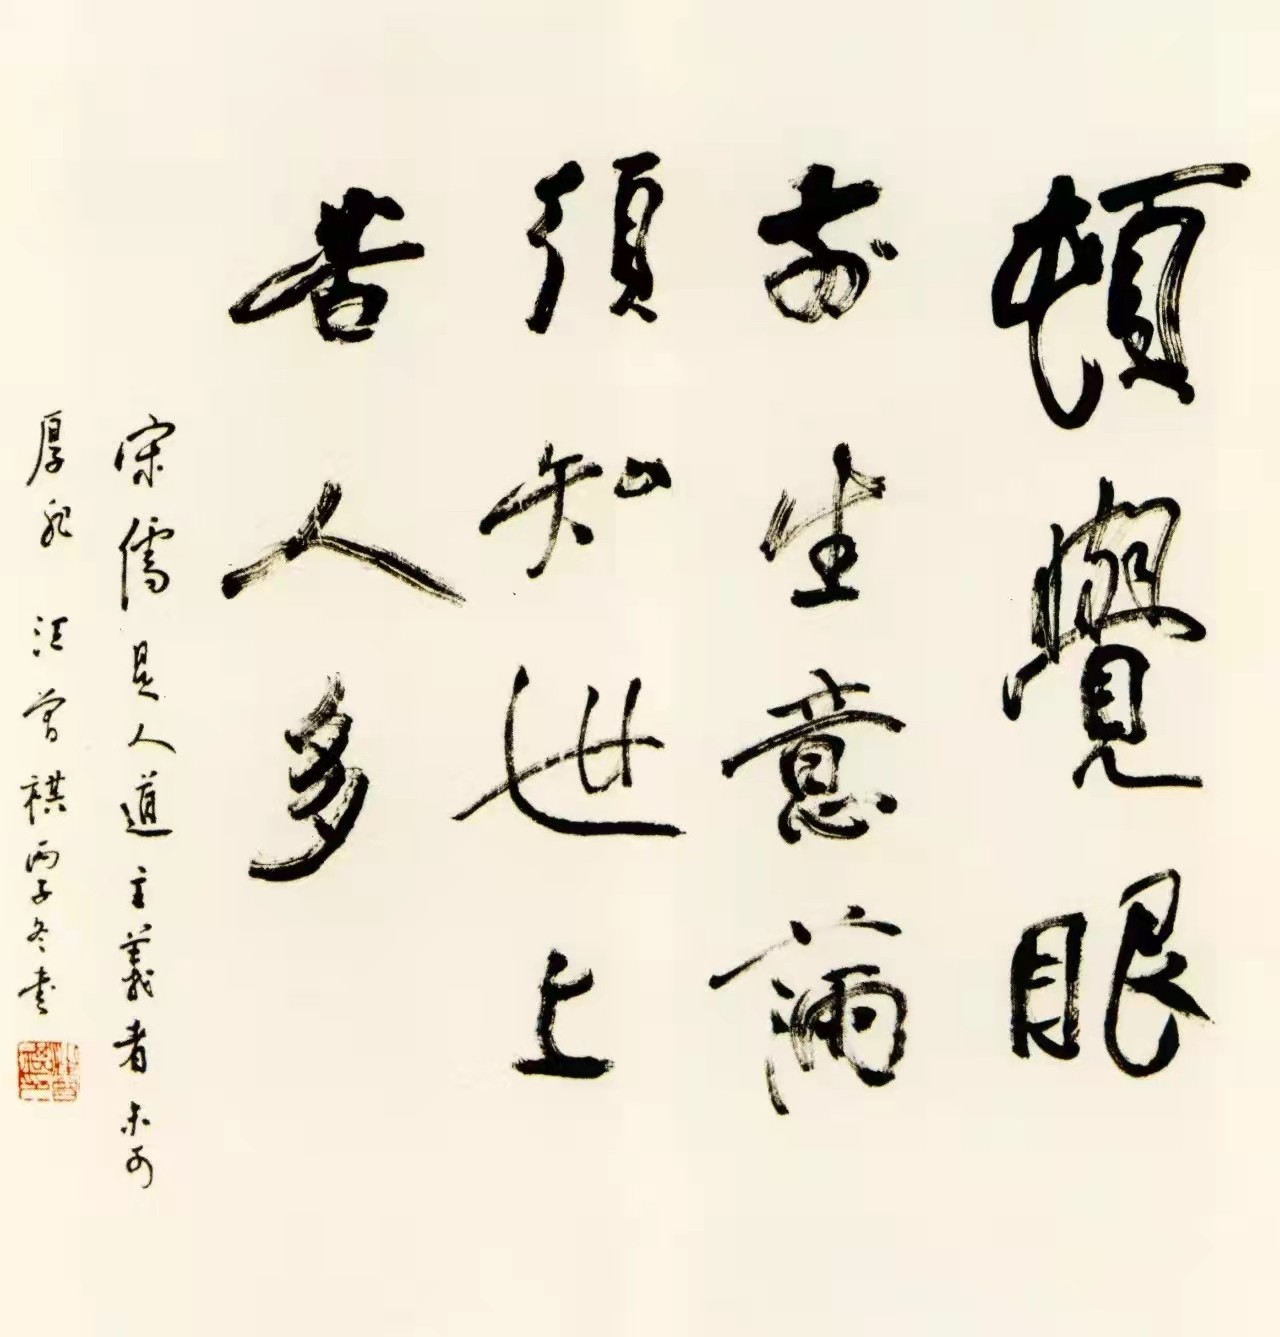 頓覺眼
前生意滿
須知世上
苦人多
宋儒是人道主義者未可
厚非 汪曾祺丙子冬書